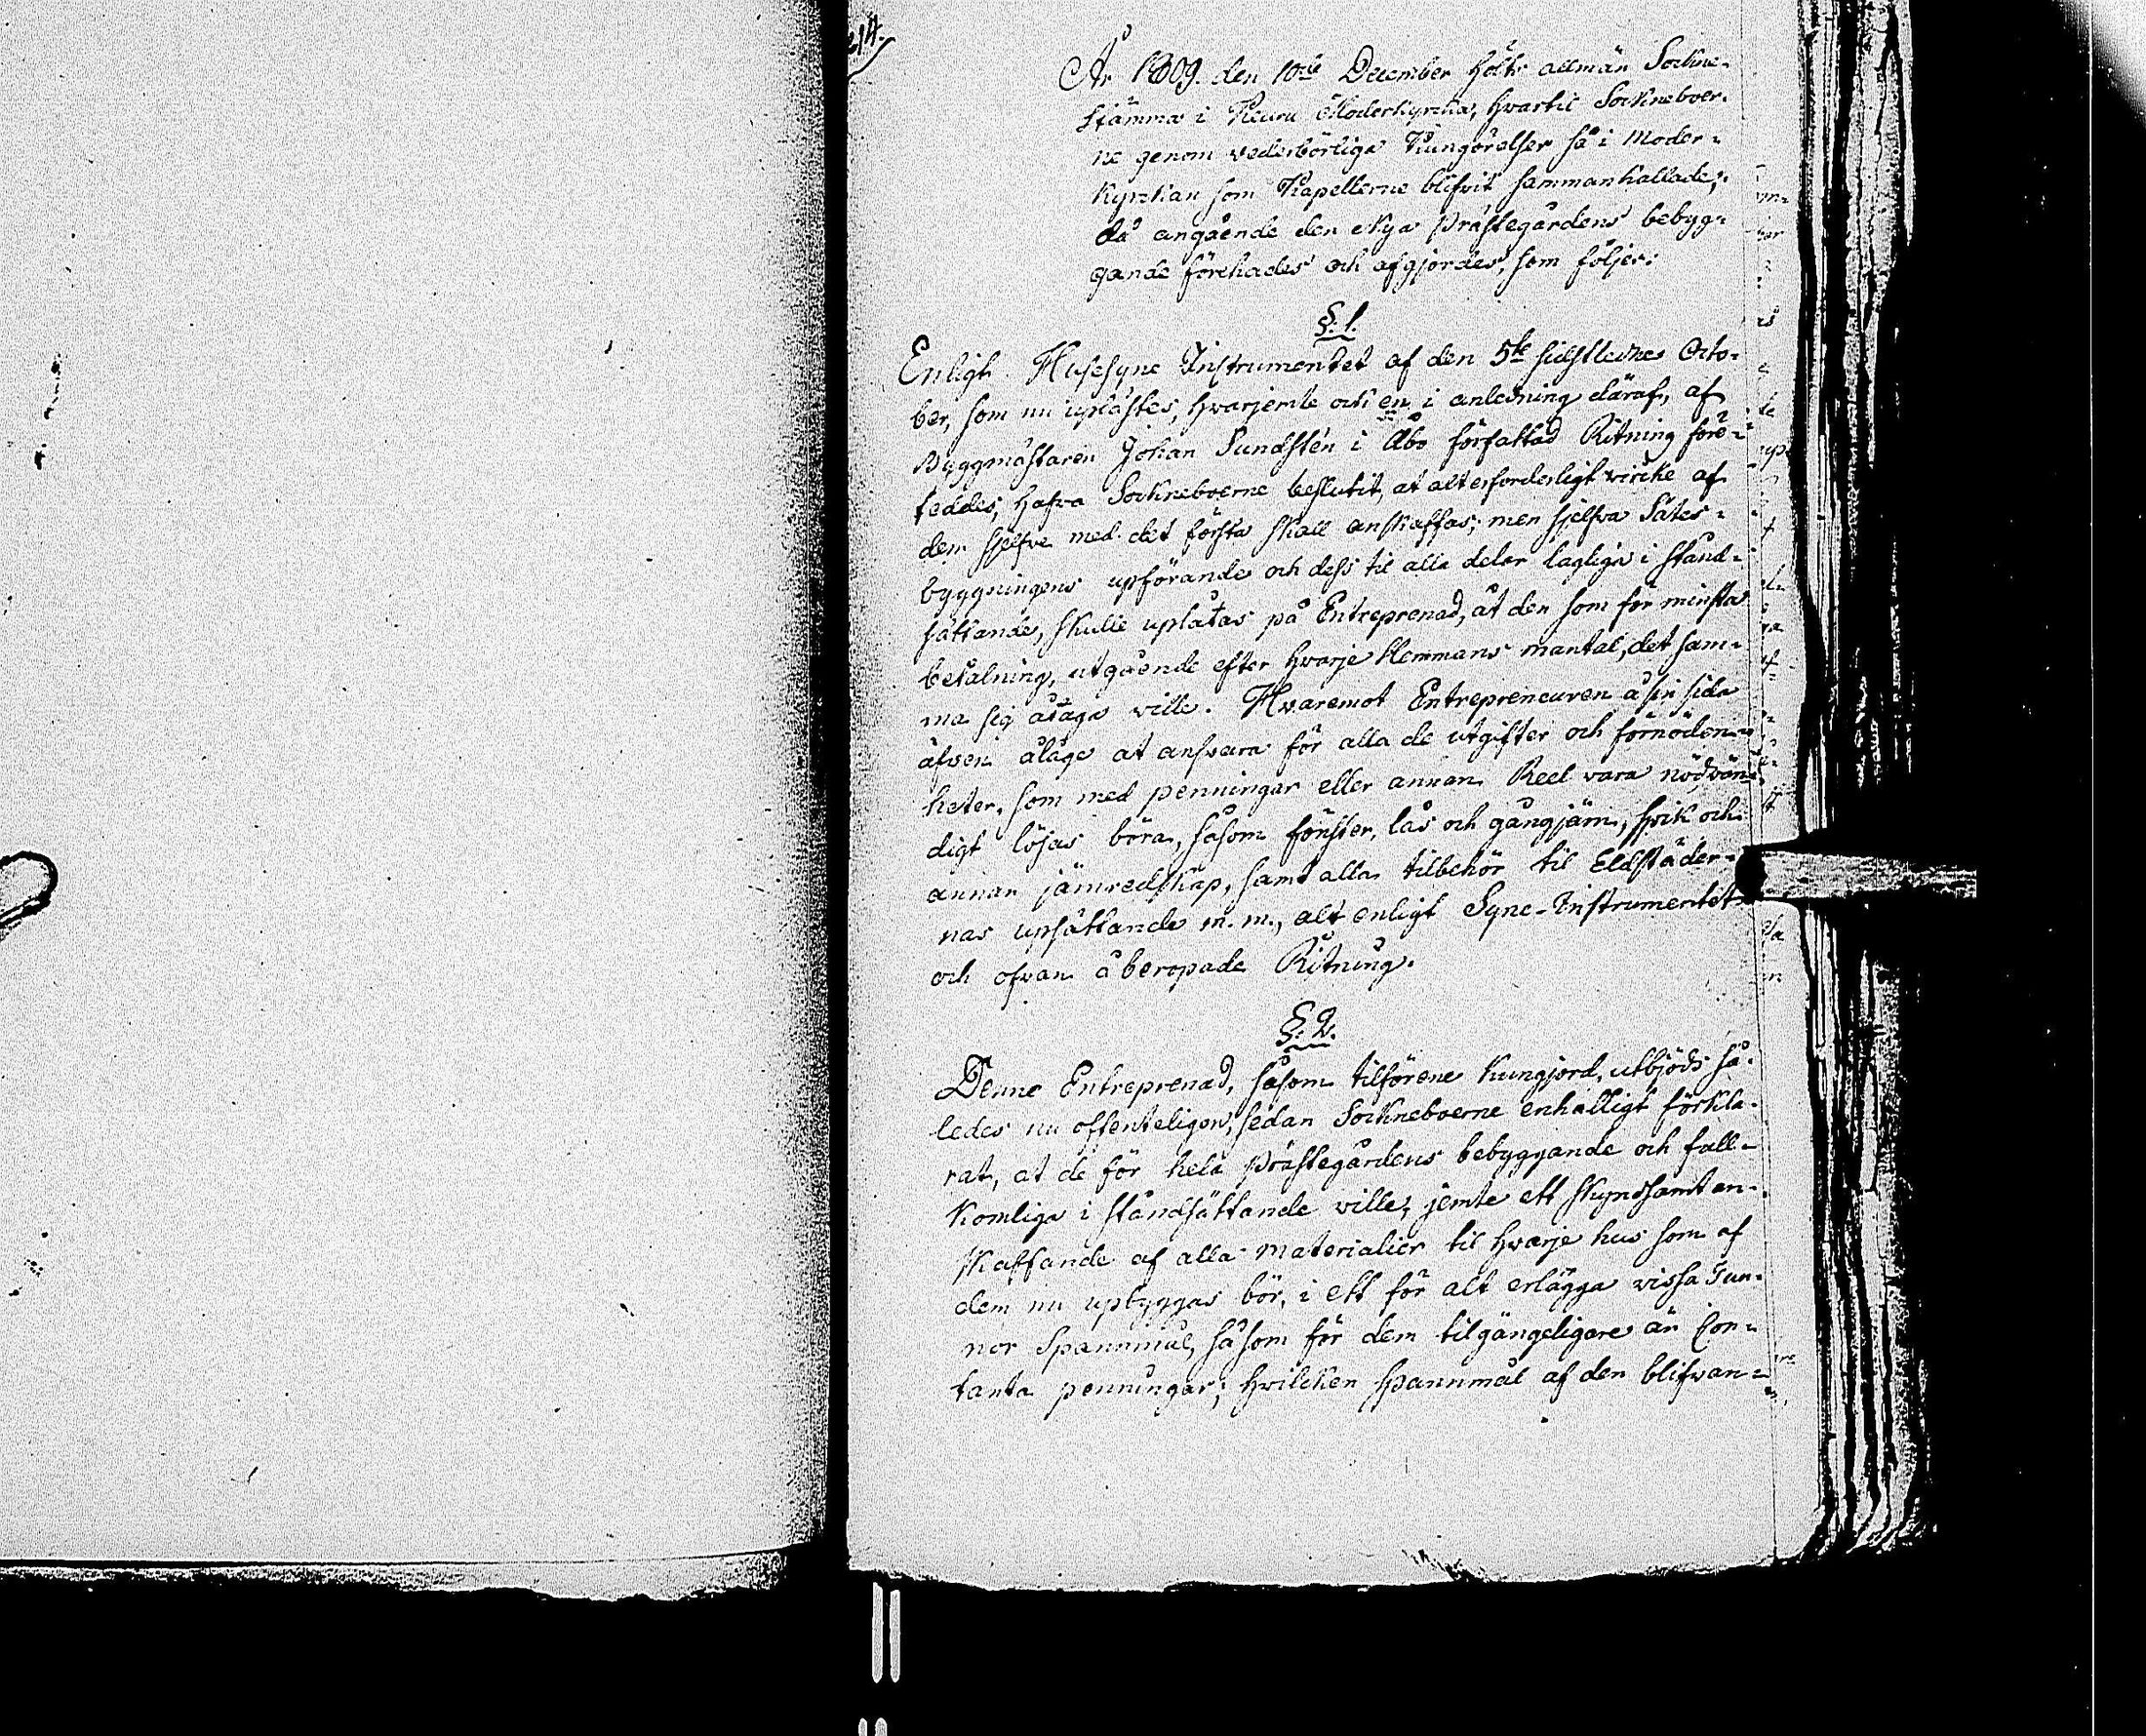 214.
År 1809. den 10de December hölts allmän Sockne-
stämma i Keuru Moderkyrka, hvartil Sockneboer-
ne genom vederbörliga Kungörelser så i Moder-
kyrkan som Kapellerne blifvit sammankallade;
då angående den nya Prästegårdens bebyg-
gande förehades och afgjordes, som följer:
§. 1.
Enligt Husesyne Instrumentet af den 5te sidstledne Octo-
ber, som nu uplästes, hvarjemte och en i anledning däraf, af
Byggmästaren Johan Sundstén i Åbo författad Ritning före-
teddes, hafva Sockneboerne beslutit, at alt erforderligt virke af
dem sjelfve med det första skall anskaffas; men sjelfva Sätes-
byggningens upförande och dess til alla delar lagliga i stånd-
sättande, skulle uplåtas på Entreprenad, åt den som för minsta
betalning, utgående efter hvarje Hemmans mantal, det sam-
ma sig åtaga ville. Hvaremot Entrepreneuren å sin sida
äfven ålåge at ansvara för alla de utgifter och förnöden-
heter, som med penningar eller annan Reel vara nödvän-
digt lösas böra, såsom fönster, lås och gångjärn, spik och
annan järnredskap, samt alla tilbehör til Eldstäder-
nas upsättande m. m., alt enligt Syne-Instrumentet
och ofvan åberopade Ritning.
§. 2.
Denne Entreprenad, såsom tilförene kungjord, utbjöds så-
ledes nu offenteligen, sedan Sockneboerne enhälligt förkla-
rat, at de för hela Prästegårdens bebyggande och full-
komliga i ståndsättande ville, jemte ett skyndsamt an-
skaffande af alla materialier til hvarje hus som af
dem nu upbyggas bör, i ett för alt erlägga vissa Tun-
nor Spannmål, såsom för dem tilgängeligare än Con-
tanta penningar; hvilcken spannmål af den blifvan-